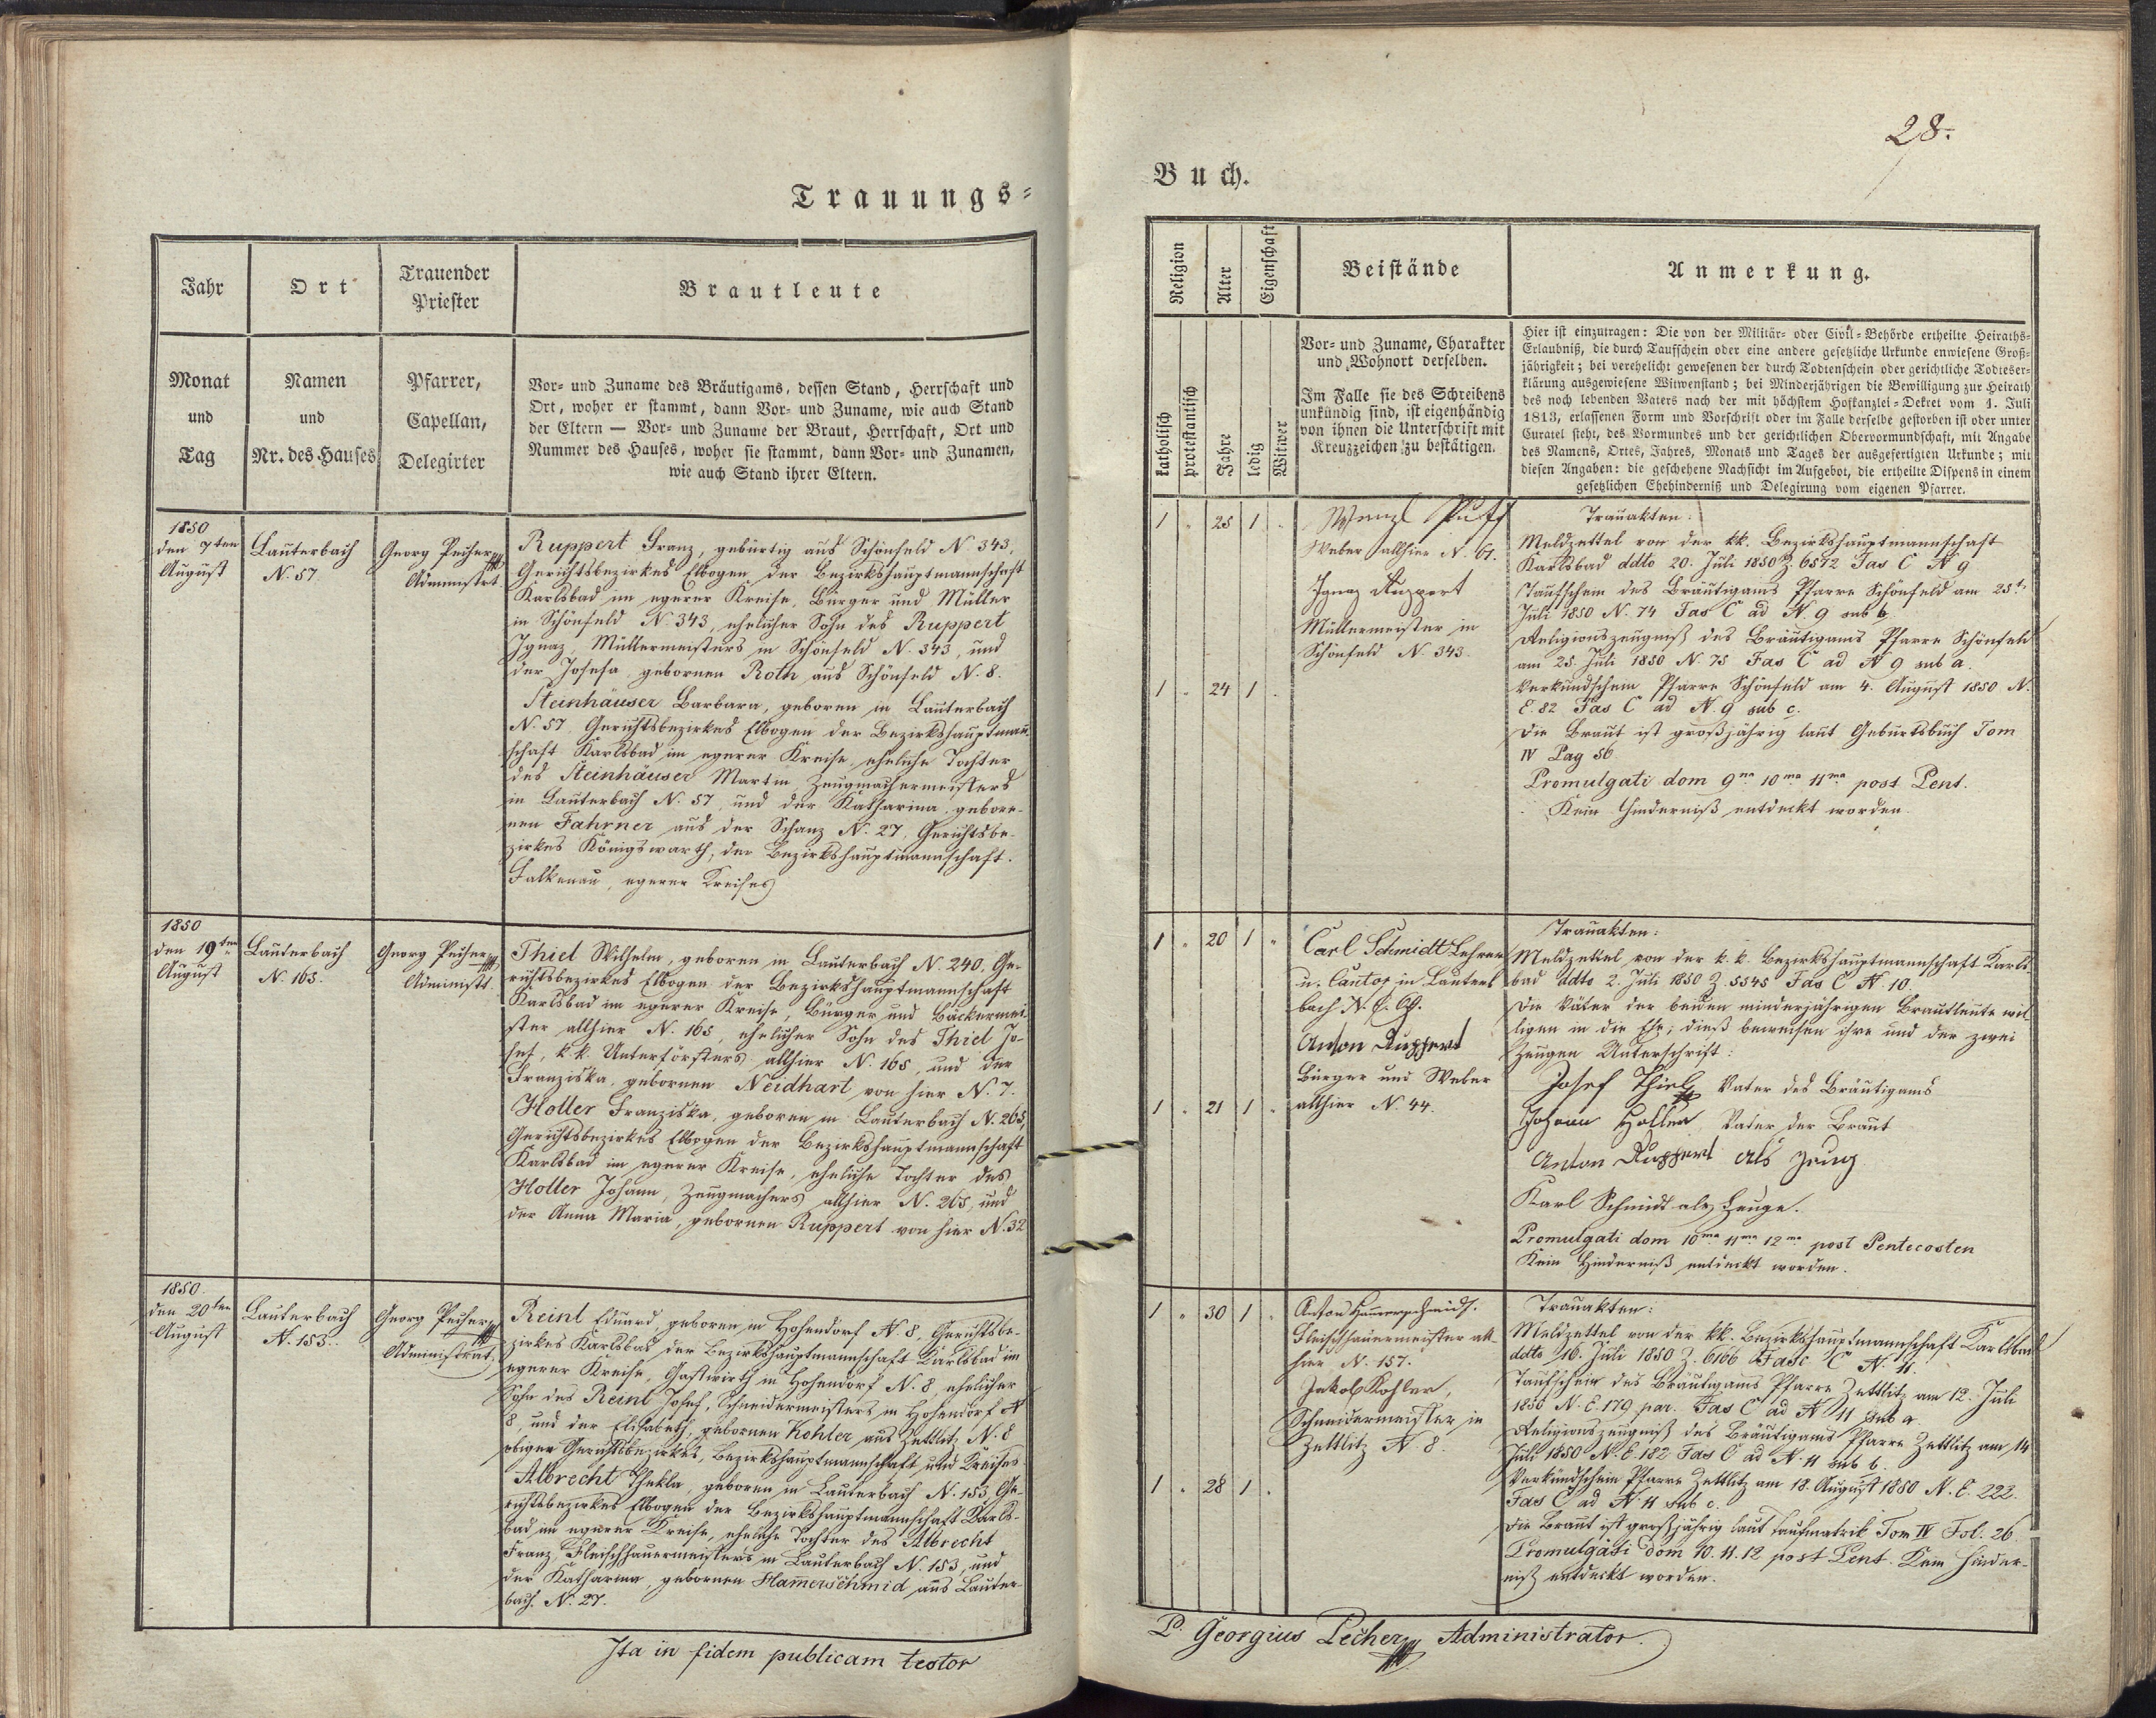 28.
Trauungs=
Buch.
Jahr
Ort
Trauender
Priester
Brautleute
Monat
und
Tag
Namen
und
Nr. des Hauses
Pfarrer,
Capellan,
Delegirter
Vor- und Zuname des Bräutigams, dessen Stand, Herrschaft und
Ort, woher er stammt, dann Vor- und Zuname, wie auch Stand
der Eltern — Vor- und Zuname der Braut, Herrschaft, Ort und
Nummer des Hauses, woher sie stammt, dann Vor- und Zunamen,
wie auch Stand ihrer Eltern.
1850
den 7ten
August
Lauterbach
N. 57
Georg Pecher
Administrt.
Ruppert Franz, gebürtig aus Schönfeld N. 343,
Gerichtsbezirkes Elbogen der Bezirkshauptmannschaft
Karlsbad im egerer Kreise, Bürger und Müller
in Schönfeld N. 343, ehelicher Sohn des Ruppert
Ignaz, Müllermeisters in Schönfeld N. 343, und
der Josefa gebornen Roth aus Schönfeld N. 8.
Steinhäuser Barbara, geboren in Lauterbach
N. 57 Gerichtsbezirkes Elbogen der Bezirkshauptmañ-
schaft Karlsbad im egerer Kreise, eheliche Tochter
des Steinhäuser Martin Zeugmachermeisters
in Lauterbach N. 57, und der Katharina gebore-
nen Fahrner aus der Schanz N. 27, Gerichtsbe-
zirkes Königswarth, der Bezirkshauptmannschaft
Falkenau, egerer Kreises
1850
den 19ten
August
Lauterbach
N. 165.
Georg Pecher
Administt.
Thiel Wilhelm, geboren in Lauterbach N. 240, Ge-
richtsbezirkes Elbogen der Bezirkshauptmannschaft
Karlsbad im egerer Kreise, Bürger und Bäckermei-
ster allhier N. 165, ehelicher Sohn des Thiel Jo-
sef, k. k. Unterförsters allhier N. 165, und der
Franziska, gebornen Neidhart von hier N. 7.
Holler Franziska, geboren in Lauterbach N. 265,
Gerichtsbezirkes Elbogen der Bezirkshauptmannschaft
Karlsbad im egerer Kreise, eheliche Tochter des
Holler Johann, Zeugmachers allhier N. 265, und
der Anna Maria, gebornen Ruppert von hier N. 32
1850
den 20ten
August
Lauterbach
N. 153.
Georg Pecher
Administrat.
Reinl Eduard, geboren in Hohendorf N. 8, Gerichtsbe-
zirkes Karlsbad der Bezirkshauptmannschaft Karlsbad im
egerer Kreise, Gastwirth in Hohendorf N. 8, ehelicher
Sohn des Reinl Josef, Schneidermeisters in Hohendorf N
8, und der Elisabeth, gebornen Kohler aus Zettlitz N. 8
obigen Gerichtsbezirkes, Bezirkshauptmannschaft und Kreises
Albrecht Thekla, geboren in Lauterbach N. 153, Ge-
richtsbezirkes Elbogen der Bezirkshauptmannschaft Karls-
bad im egerer Kreise, eheliche Tochter des Albrecht
Franz, Fleischhauermeisters in Lauterbach N. 153, und
der Katharina, gebornen Ham̄erschmid aus Lauter-
bach N. 27.
Ita in fidem publicam testor
Religion
Alter
Eigenschaft
Beistände
Anmerkung.
katholisch
protestantisch
Jahre
ledig
Witwer
Vor- und Zuname, Charakter
und Wohnort derselben.
Im Falle sie des Schreibens
unkündig sind, ist eigenhändig
von ihnen die Unterschrift mit
Kreuzzeichen zu bestätigen.
Hier ist einzutragen: Die von der Militär- oder Civil-Behörde ertheilte Heiraths-
Erlaubniß, die durch Taufschein oder eine andere gesetzliche Urkunde enwiesene Groß-
jährigkeit; bei verehelicht gewesenen der durch Todtenschein oder gerichtliche Todteser-
klärung ausgewiesene Witwenstand; bei Minderjährigen die Bewilligung zur Heirath
des noch lebenden Vaters nach der mit höchstem Hofkanzlei-Dekret vom 1. Juli
1813, erlassenen Form und Vorschrift oder im Falle derselbe gestorben ist oder unter
Curatel steht, des Vormundes und der gerichtlichen Obervormundschaft, mit Angabe
des Namens, Ortes, Jahres, Monats und Tages der ausgefertigten Urkunde; mit
diesen Angaben: die geschehene Nachsicht im Aufgebot, die ertheilte Dispens in einem
gesetzlichen Ehehinderniß und Delegirung vom eigenen Pfarrer.
1 " 25 1 "
Weber allhier N. 61.
Ignaz Ruppert
Müllermeister in
Schönfeld N. 343.
1 " 24 1 "
Trauakten:
Meldzettel von der kk. Bezirkshauptmannschaft
Karlsbad ddto 20. Juli 1850 Z. 6572 Fas C N 9
Taufschein des Bräutigams Pfarre Schönfeld am 25t.
Juli 1850 N. 74 Fas C ad N. 9 sub b
Religionszeugniß des Bräutigams Pfarre Schönfeld
am 25. Juli 1850 N. 75 Fas C ad N 9 sub a.
Verkündschein Pfarre Schönfeld am 4. August 1850 N.
E. 82 Fas C ad N. 9 sub c.
Die Braut ist großjährig laut Geburtsbuch Tom
IV Pag 56
Promulgati dom 9na 10ma 11ma post Pent.
Kein Hinderniß entdeckt worden.
1 " 20 1 "
Carl Schmidt Lehrer
u. Cantor in Lauter
bach N. C.
Anton Ruppert
Bürger und Weber
allhier N. 44.
1 " 21 1 "
Trauakten:
Meldzettel von der k. k. Bezirkshauptmannschaft Karls-
bad ddto 2. Juli 1850 Z. 5545 Fas C N. 10.
Die Väter der beiden minderjährigen Brautleute wil-
ligen in die Ehe; dieß beweisen ihre und der zwei
Zeugen Unterschrift:
Josef Thiel Vater des Bräutigams
Johann Holler, Vater der Braut
Anton Ruppert als Zeug
Karl Schmidt als Zeuge.
Promulgati dom 10ma 11ma 12ma post Pentecosten
Kein Hinderniß entdeckt worden.
1 " 30 1 "
Anton Hammerschmidt.
Fleischhauermeister all-
hier N. 157.
Jakob Kohler,
Schneidermeister in
Zettlitz N. 8.
1 " 28 1 "
Trauakten:
Meldzettel von der kk. Bezirkshauptmannschaft Karlsbad
ddto 16. Juli 1850 Z. 6166 Fasc C N. 11.
Taufschein des Bräutigams Pfarre Zettlitz am 12. Juli
1850 N. E. 179 par. Fas C ad N 11 sub a.
Religionszeugniß des Bräutigams Pfarre Zettlitz am 14
Juli 1850 N. E. 182 Fas C ad N. 11 sub b.
Verkündschein Pfarre Zettlitz am 18. August 1850 N. E. 222.
Fas C ad N. 11 sub c.
Die Braut ist großjährig laut Taufmatrik Tom IV Fol. 26.
Promulgati dom 10. 11. 12 post Pent. Kein Hinder-
niß entdeckt worden.
P. Georgius Pecher Administrator.